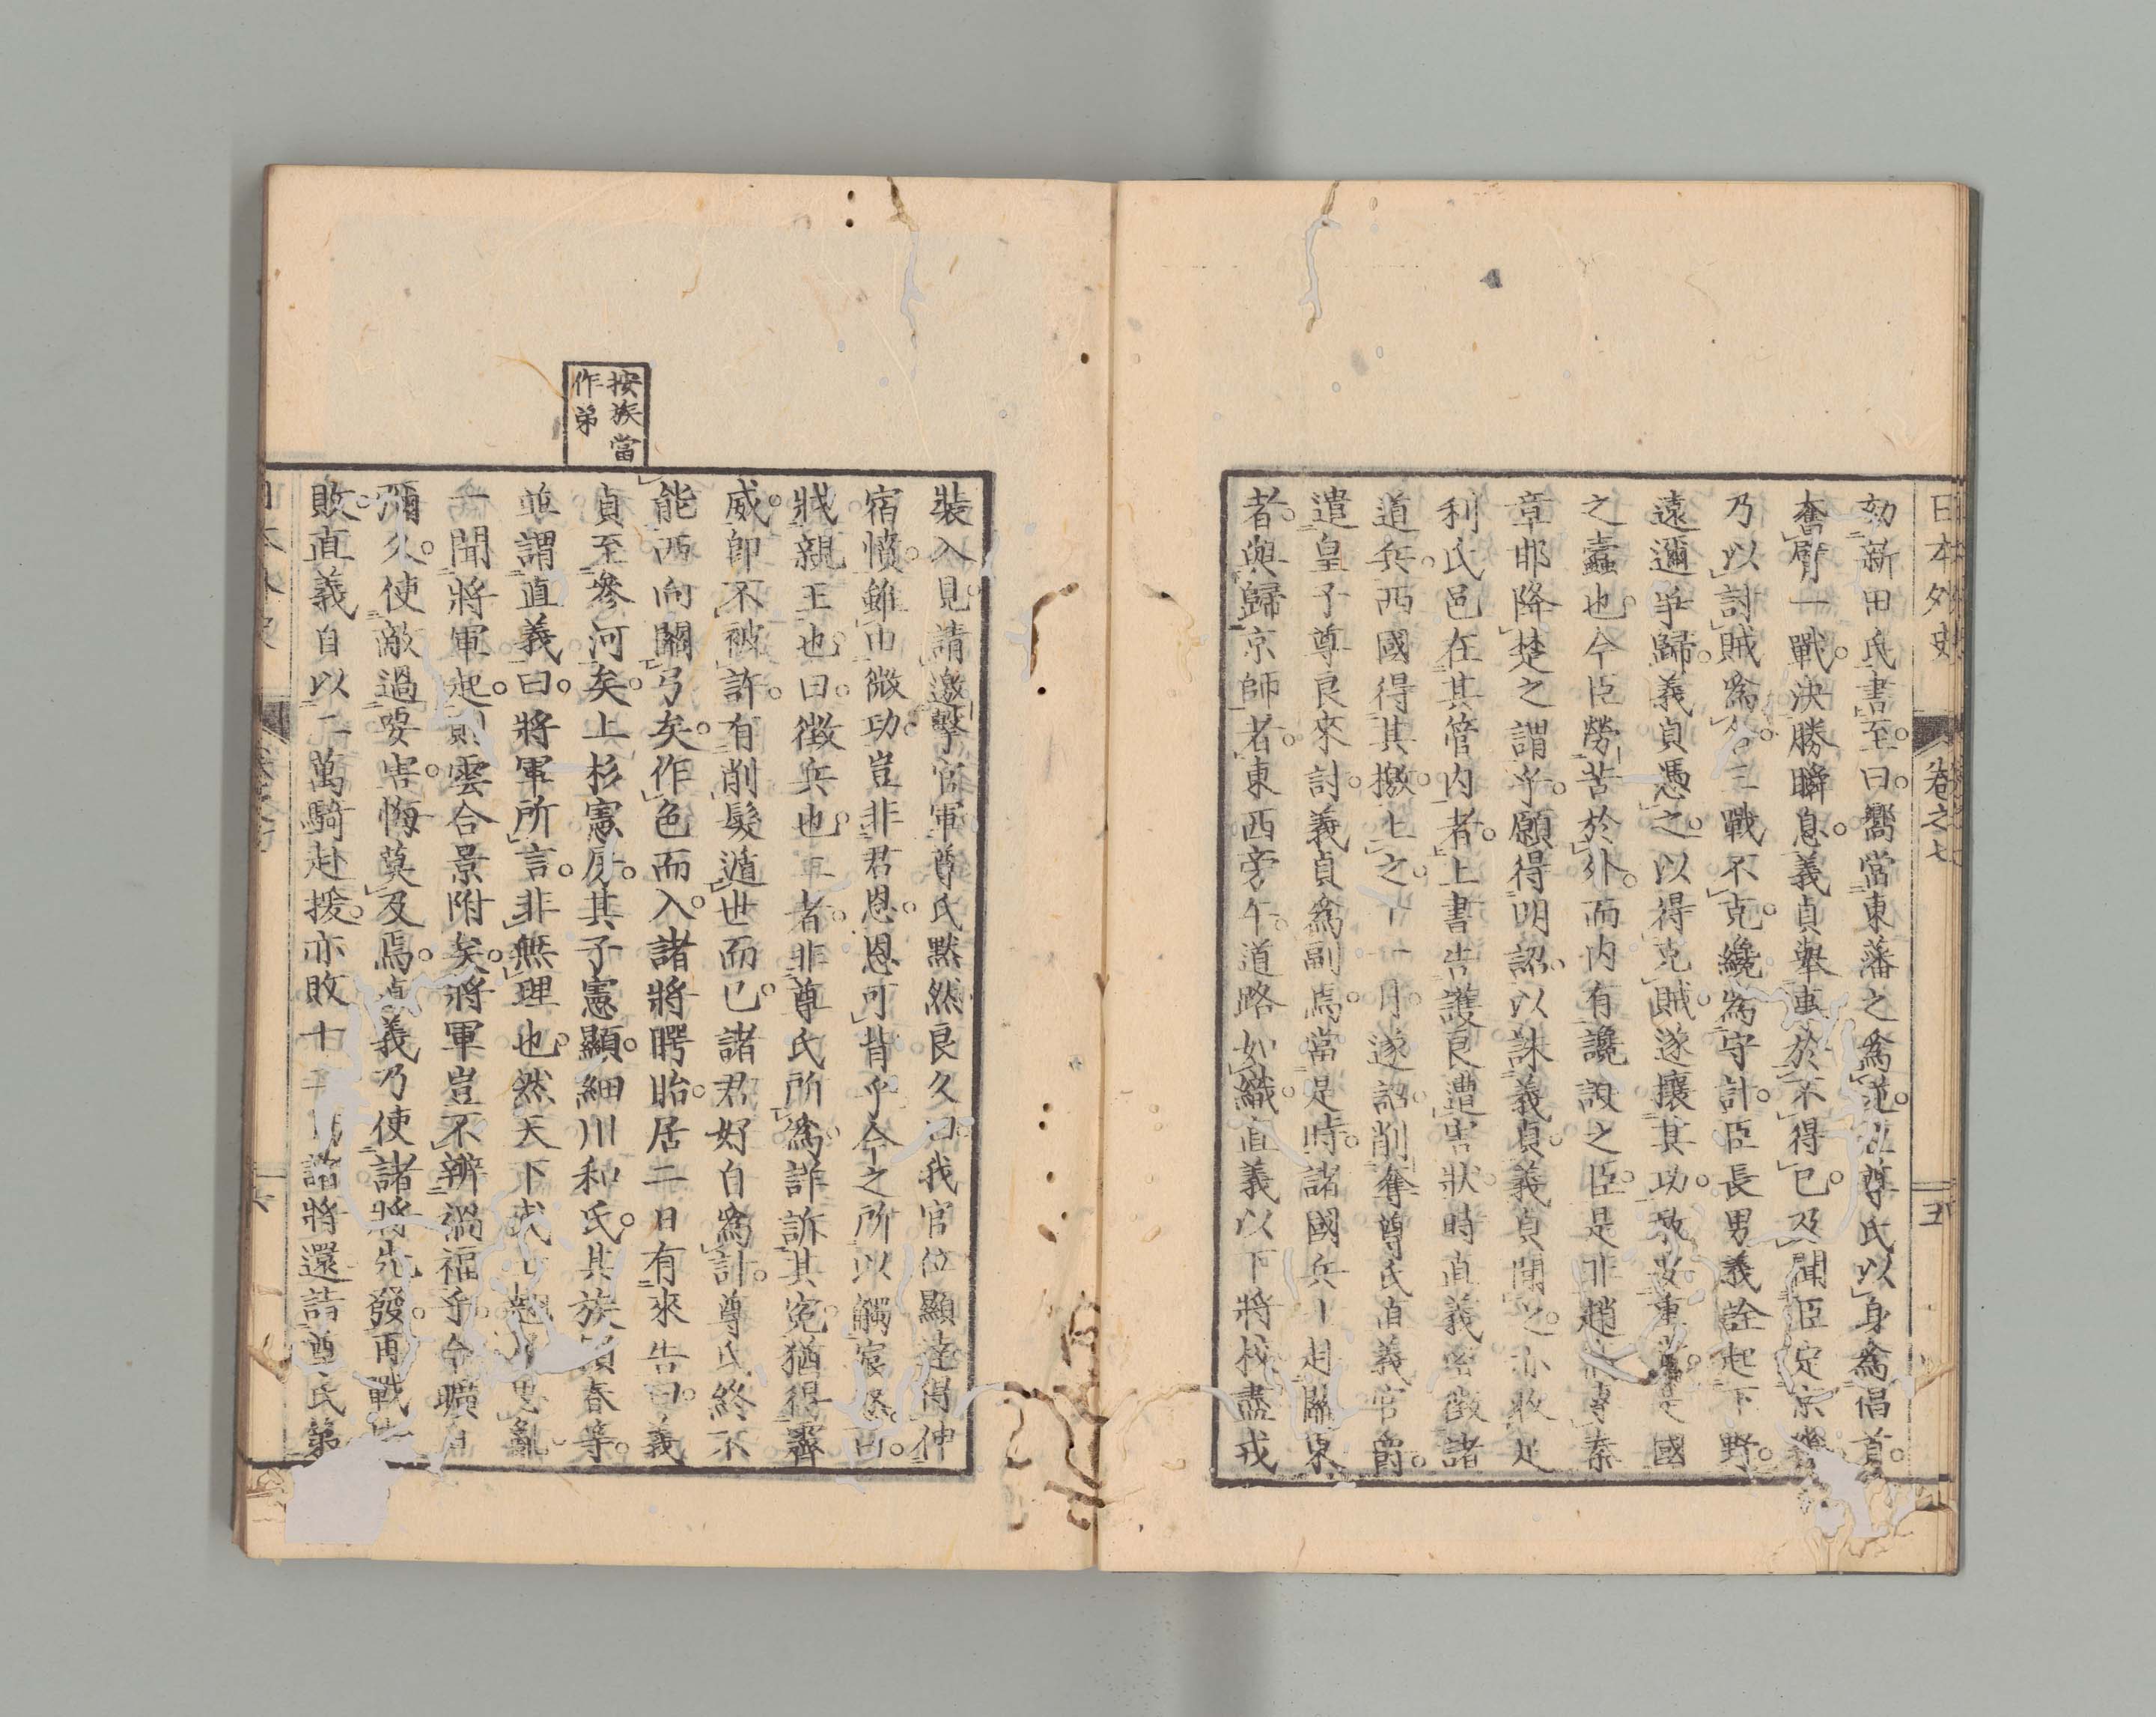 日本外史 卷之七 五
劾新田氏書至曰嚮當東藩之爲逆臣尊氏以身爲倡首
奮臂一戰決勝瞬息義貞擧事於不得已及聞臣定京
乃以討賊爲名三戰不克纔爲守計臣長男義詮起下野
遠邇爭歸義貞憑之以得克賊遂攘其功敢妄重 是國
之蠹也今臣勞苦於外而内有讒諛之臣是非趙高專秦
章邯降楚之謂乎願得明詔以誅義貞義貞聞之亦收足
利氏邑在其管内者上書吿護良遭害狀時直義密徵諸
道兵西國得其檄上之十一月遂詔削奪尊氏直義官爵
遣皇子尊良來討義貞爲副焉當是時諸國兵 赴關東
者與歸京師者東西旁午道路如織直義以下將校盡戎
裝入見請邀擊官軍尊氏默然良久曰我官位顯達得伸
宿憤雖由微功豈非君恩恩可背乎今之所以觸宸怒曰
戕親王也曰徵兵也二者非尊氏所爲詳訴其寃猶得霽
威卽不被許有削髮遁世而已諸君好自爲計尊氏終不
能西向關弓矣作色而入諸將愕眙居二日有來吿曰義
貞至參河矣上杉憲房其子憲顯細川和氏其族賴春等
並謂直義曰將軍所言非無理也然天下 思亂
一聞將軍起則雲合景附矣將軍豈不辨禍福乎今曠日
彌久使敵過要害悔莫及焉直義乃使諸將先發再戰
敗直義自以二萬騎赴援亦敗十 諸將還詣尊氏第
按族當
作弟